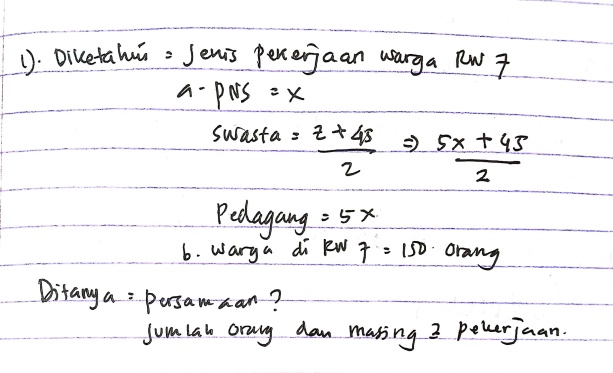 1). Diketahui = Jenis pekerjaan warga RW 7
a. PNS = x
Swasta = z + 45 / 2 ⇒ 5x + 45 / 2
Pedagang = 5x
b. warga di RW 7 = 150 orang
Ditanya = persamaan ?
Jumlah orang dan masing 2 pekerjaan.